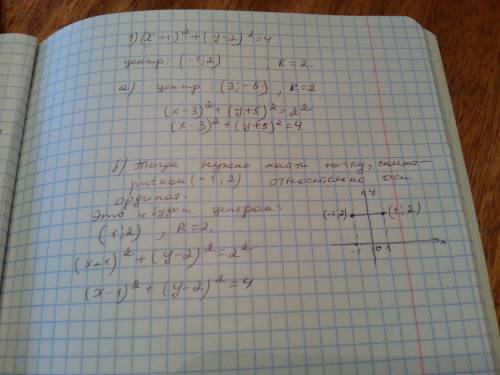 1) (x+1)²+(y-2)²=4
центр: (-1;2) , R=2.
а) центр: (3;-5), R=2
(x-3)²+(y+5)²=2²
(x-3)²+(y+5)²=4
б) Тогда нужно найти точку, симмет-
ричной (-1;2) относительно оси
ординат.
Это и будет центром:
(1;2) , R=2.
(x-1)²+(y-2)²=2²
(x-1)²+(y-2)²=4
y
(-1;2) (1;2)
-1 0 1 x